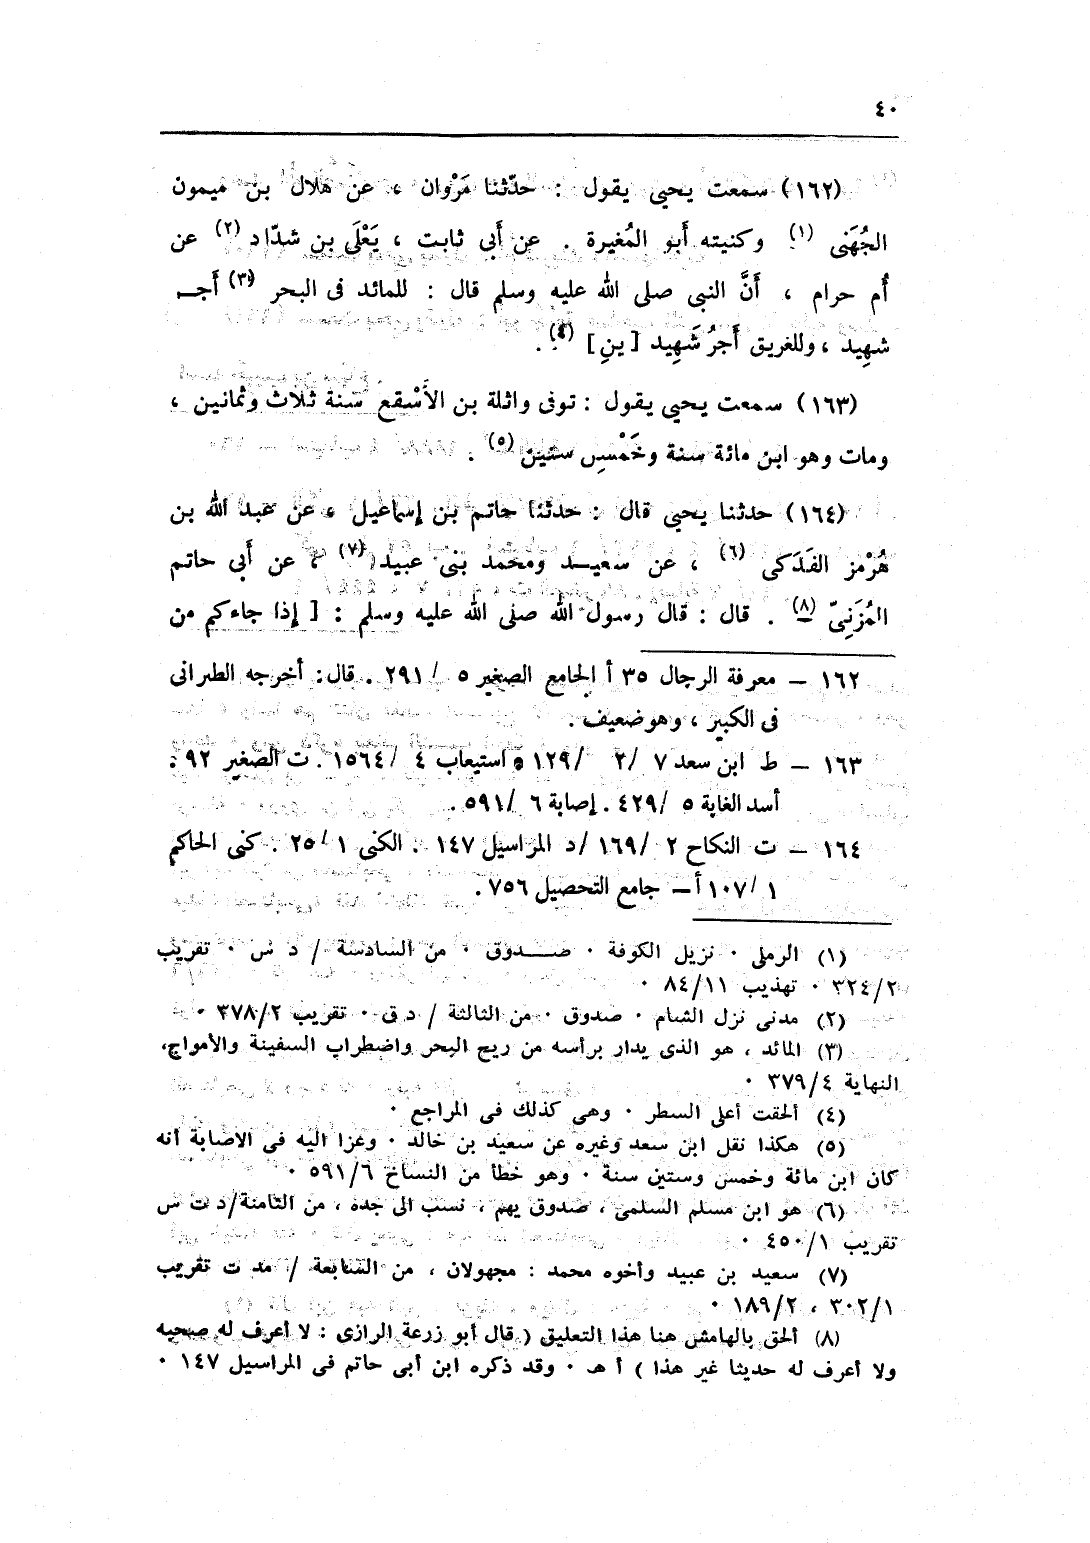 ٤٠
(١٦٢) سمعت يحيى يقول : حدّثنا مَرْوان ، عن هلال بن ميمون
الجُهَنى (١) وكنيته أبو المُغيرة . عن أبي ثابت ، يَعْلَى بن شدّاد (٢) عن
أُم حرام ، أَنَّ النبي صلى الله عليه وسلم قال : للمائد فى البحر (٣) أَجـ
شهِيد ، وللغريق أَجرُ شَهِيد [ ينِ ] (٤) .
(١٦٣) سمعت يحيى يقول : توفى واثلة بن الأَسْقع سنة ثلاث وثمانين ،
ومات وهو ابن مائة سنة وخَمْسِ ستين (٥) .
(١٦٤) حدثنا يحيى قال : حدثنا حاتم بن إسماعيل ، عن عبد الله بن
هُرْمز الفَدَكى (٦) ، عن سعيـد ومحمد بنى عبيد (٧) ، عن أَبي حاتم
المُزَنِىّ (٨) . قال : قال رسول الله صلى الله عليه وسلم : [ إذا جاءكم من
١٦٢ – معرفة الرجال ٣٥ أ الجامع الصغير ٥ / ٢٩١ . قال : أخرجه الطبرانى
فى الكبير ، وهو ضعيف .
١٦٣ – ط ابن سعد ٧ / ٢ / ١٢٩ ، استيعاب ٤ / ١٥٦٤ . ت الصغير ٩٢ .
أسد الغابة ٥ / ٤٢٩ . إصابة ٦ / ٥٩١ .
١٦٤ – ت النكاح ٢ / ١٦٩ / د المراسيل ١٤٧ . الكنى ١ / ٢٥ . كنى الحاكم
١ / ١٠٧ أ – جامع التحصيل ٧٥٦ .
(١) الرملى ٠ نزيل الكوفة ٠ صـــدوق ٠ من السادسة / د س ٠ تقريب
٣٢٤/٢ ٠ تهذيب ٨٤/١١ ٠
(٢) مدنى نزل الشام ٠ صدوق ٠ من الثالثة / د ق ٠ تقريب ٣٧٨/٢ ٠
(٣) المائد ، هو الذى يدار برأسه من ريح البحر واضطراب السفينة والأمواج،
النهاية ٣٧٩/٤ ٠
(٤) ألحقت أعلى السطر ٠ وهى كذلك فى المراجع ٠
(٥) هكذا نقل ابن سعد وغيره عن سعيد بن خالد ٠ وعزا اليه فى الاصابة أنه
كان ابن مائة وخمس وستين سنة ٠ وهو خطأ من النساخ ٥٩١/٦ ٠
(٦) هو ابن مسلم السلمى ، صدوق يهم ، نسب الى جده ، من الثامنة/د ت س
تقريب ٤٥٠/١ ٠
(٧) سعيد بن عبيد وأخوه محمد : مجهولان ، من السابعة / مد ت تقريب
٣٠٢/١ ، ١٨٩/٢ ٠
(٨) ألحق بالهامش هنا هذا التعليق ( قال أبو زرعة الرازى : لا أعرف له صحبه
ولا أعرف له حديثا غير هذا ) أ هـ ٠ وقد ذكره ابن أبى حاتم فى المراسيل ١٤٧ ٠